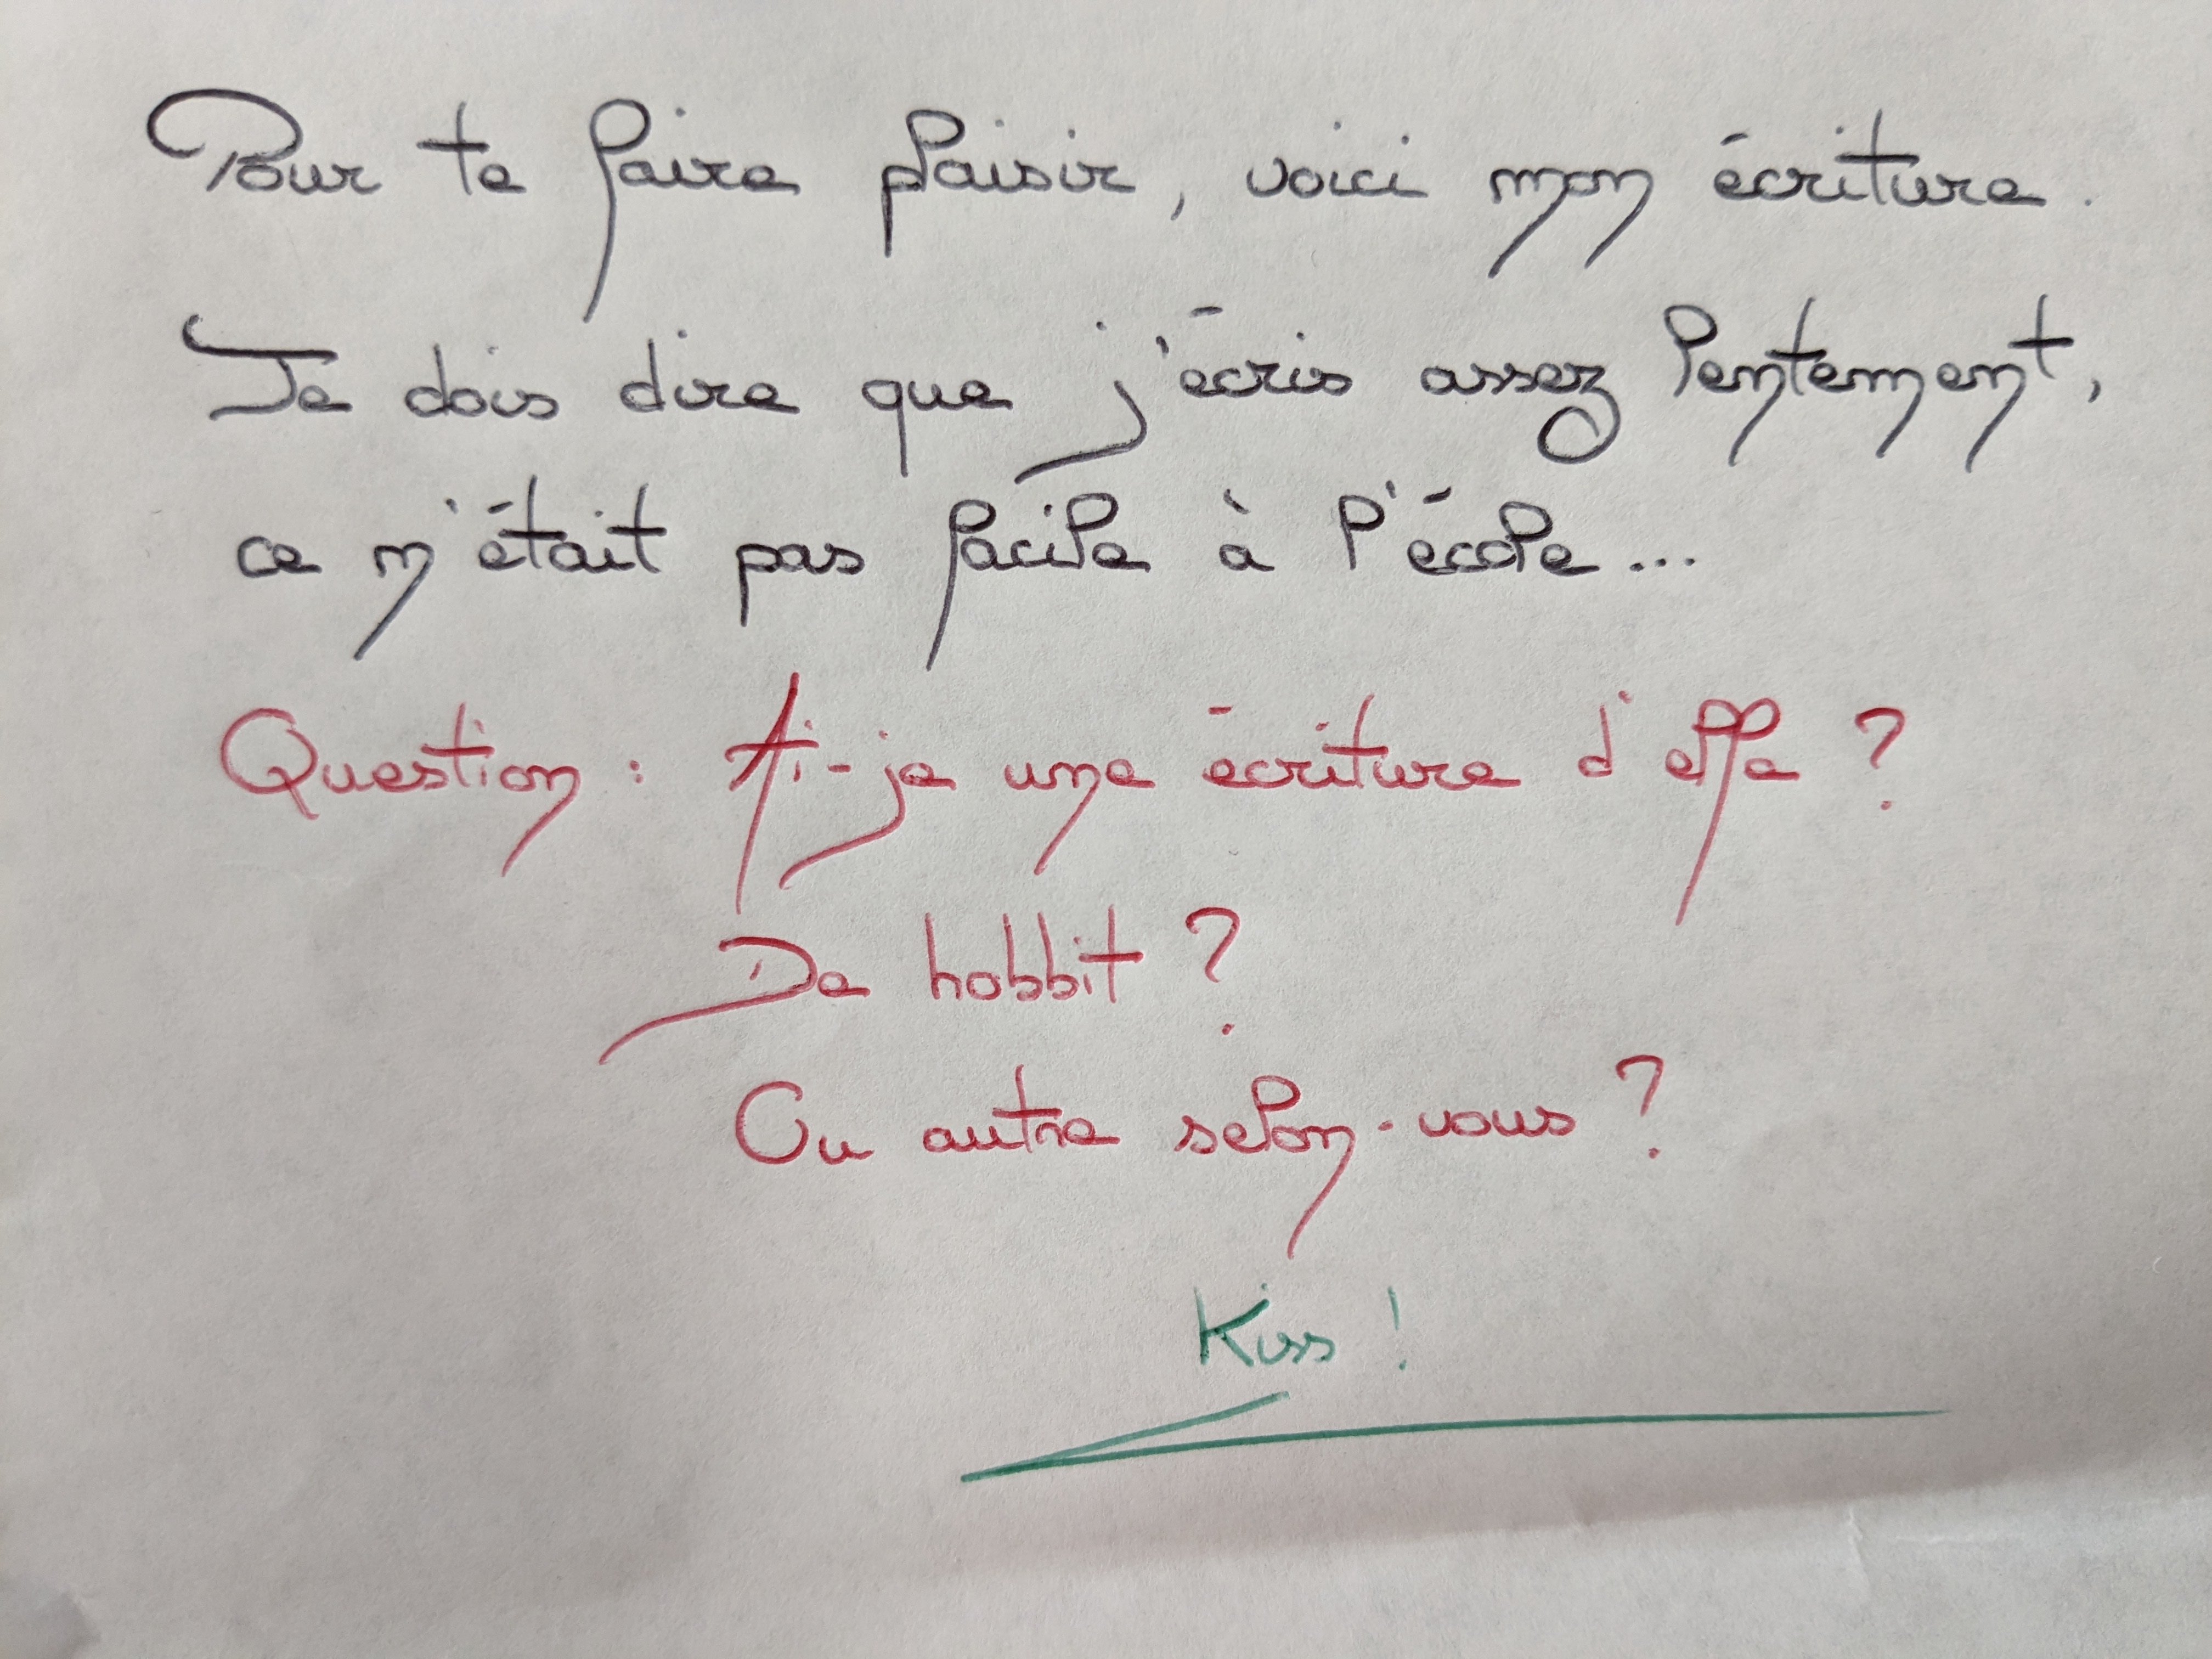 Pour te faire plaisir, voici mon écriture.
Je dois dire que j'écris assez lentement,
ce n'était pas facile à l'école...
Question : Ai-je une écriture d'elfe ?
De hobbit ?
Ou autre selon-vous ?
Kiss !